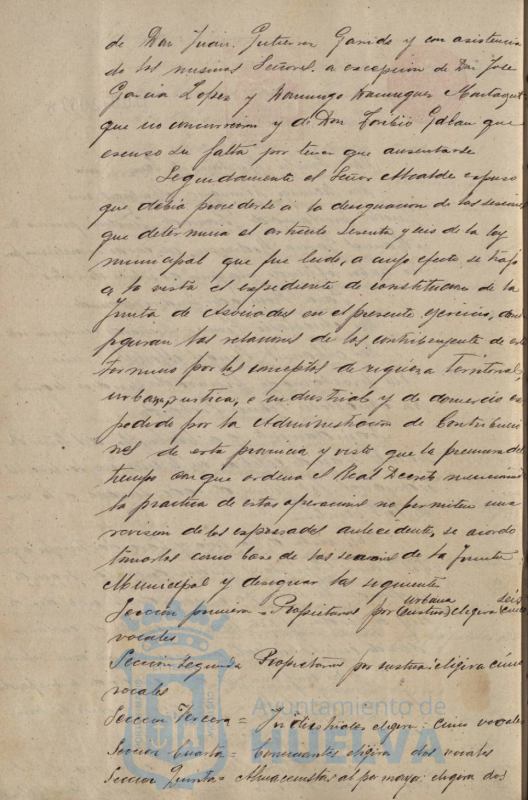 de Don Juan Gutierrez Garrido y con asistencia
de los mismos Señores a excepcion de Don Jose
Garcia Lopez y Domingo Dominguez
que no concurrieron y de Don Toribio Galban que
escuso su falta por tener que ausentarse
Seguidamente el Señor Alcalde espuso
que debia procederse á la designacion de las secciones
que determina el articulo sesenta y seis de la ley
municipal que fue leido, a cuyo efecto se trajo
a la vista el espediente de constitucion de la
Junta de Asociados en el presente ejercicio, don
figuran las relaciones de los contribuyentes de este
termino por los conceptos de riqueza territorial,
urbana, rustica, e industrial y de comercio es
pedido por la Administracion de Contribucio
nes de esta provincia y visto que la premura del
tiempo con que ordena el Real Decreto
la practica de estas operaciones no permiten una
revision de los espresados antecedentes, se acordo
tomarlos como base de las secciones de la Junta
Municipal y designar las siguientes
urbana seis
Seccion primera = Propietarios por (rustica) eligira cinco
vocales
Seccion segunda Propietarios por rustica: eligira cinco
vocales
Seccion Tercera = Industriales eligira: cinco vocales
Seccion Cuarta = Comerciantes eligira dos vocales
Seccion Quinta = Almacenistas al por mayor: eligira dos
Ayuntamiento de
HUELVA